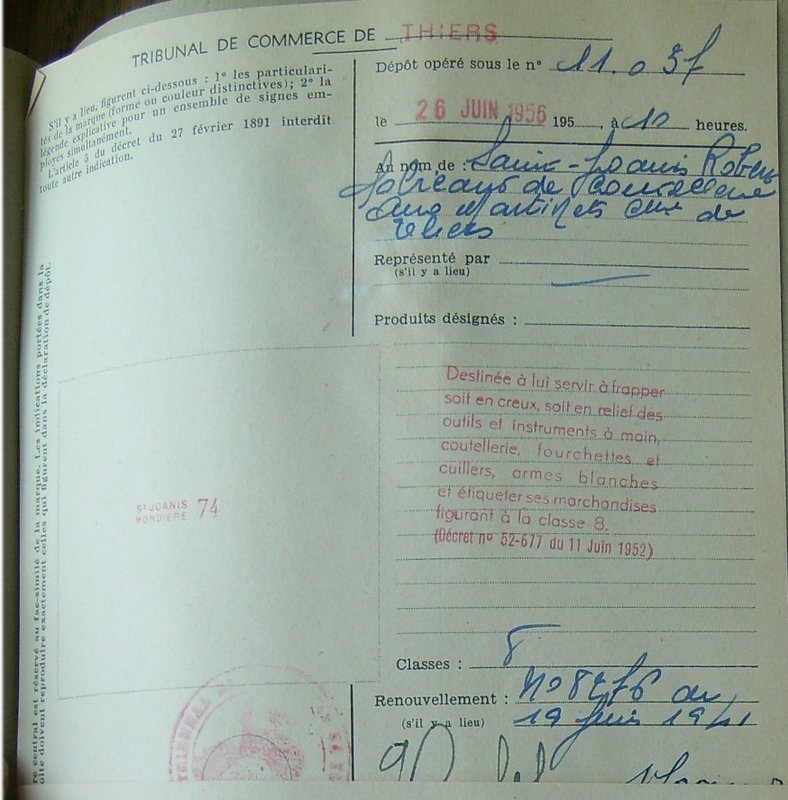 TRIBUNAL DE COMMERCE DE THIERS
S'il y a lieu, figurent ci-dessous : 1º les particulari-
tés de la marque (forme ou couleur distinctives); 2º la
légende explicative pour un ensemble de signes em-
ployés simultanément.
L'article 5 du décret du 27 février 1891 interdit
toute autre indication.
Dépôt opéré sous le nº 11.037
le 26 JUIN 1956 195 , à 10 heures.
Au nom de : Saint-Joanis Robert
fabricant de coutellerie
rue de
Thiers
Représenté par
(s'il y a lieu)
Produits désignés :
Destinée à lui servir à frapper
soit en creux, soit en relief des
outils et instruments à main,
coutellerie, fourchettes et
cuillers, armes blanches
et étiqueter ses marchandises
figurant à la classe 8.
(Décret nº 52-677 du 11 Juin 1952)
ST JOANIS
MONDIERE 74
Classes : 8
Renouvellement : Nº 8276 du
(s'il y a lieu) 19 Juin 1941
re central est réservé au fac-similé de la marque. Les indications portées dans la
oite doivent reproduire exactement celles qui figurent dans la déclaration de dépôt.
TRIBUNAL